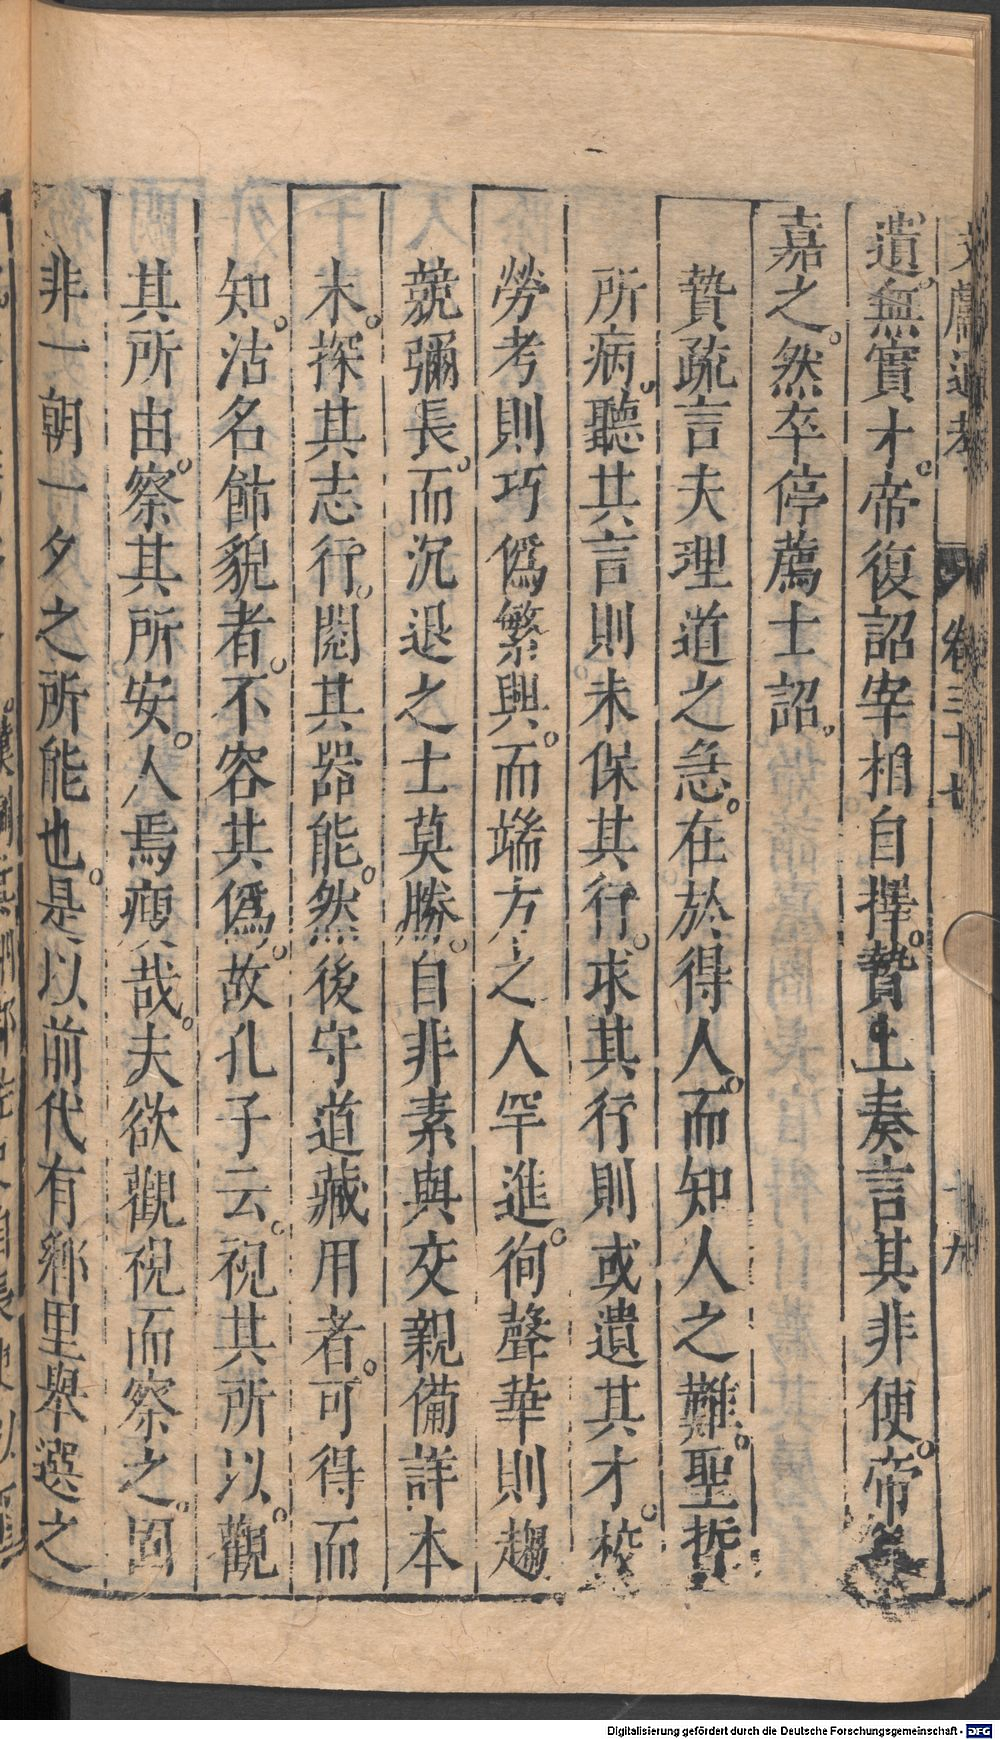 文獻通考 卷三十七 十九
遺。無實才。帝復詔宰相自擇。贄上奏言其非使。帝雖
嘉之。然卒停薦士詔。
贄疏言夫理道之急。在於得人。而知人之難。聖哲
所病。聽其言則未保其行。求其行則或遺其才。校
勞考則巧僞繁興。而端方之人罕進。徇聲華則趨
競彌長。而沉退之士莫勝。自非素與交親備詳本
末。探其志行。閱其器能。然後守道藏用者。可得而
知。沽名飾貌者。不容其僞。故孔子云。視其所以。觀
其所由。察其所安。人焉廋哉。夫欲觀視而察之。固
非一朝一夕之所能也。是以前代有鄉里舉選之
Digitalisierung gefördert durch die Deutsche Forschungsgemeinschaft - DFG